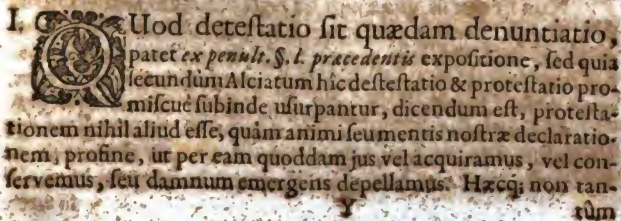 I. QUod detestatio sit quædam denuntiatio,
patet ex penult. §. l. præcedentis expositione, sed quia
secundùm Alciatum hîc destestatio & protestatio pro-
miscuè subinde usurpantur, dicendum est, protesta-
tionem nihil aliud esse, quàm animi seu mentis nostræ declaratio-
nem, profine, ut per eam quoddam jus vel acquiramus, vel con-
servemus, seu damnum emergens depellamus. Hæcq; non tan-
Y tùm